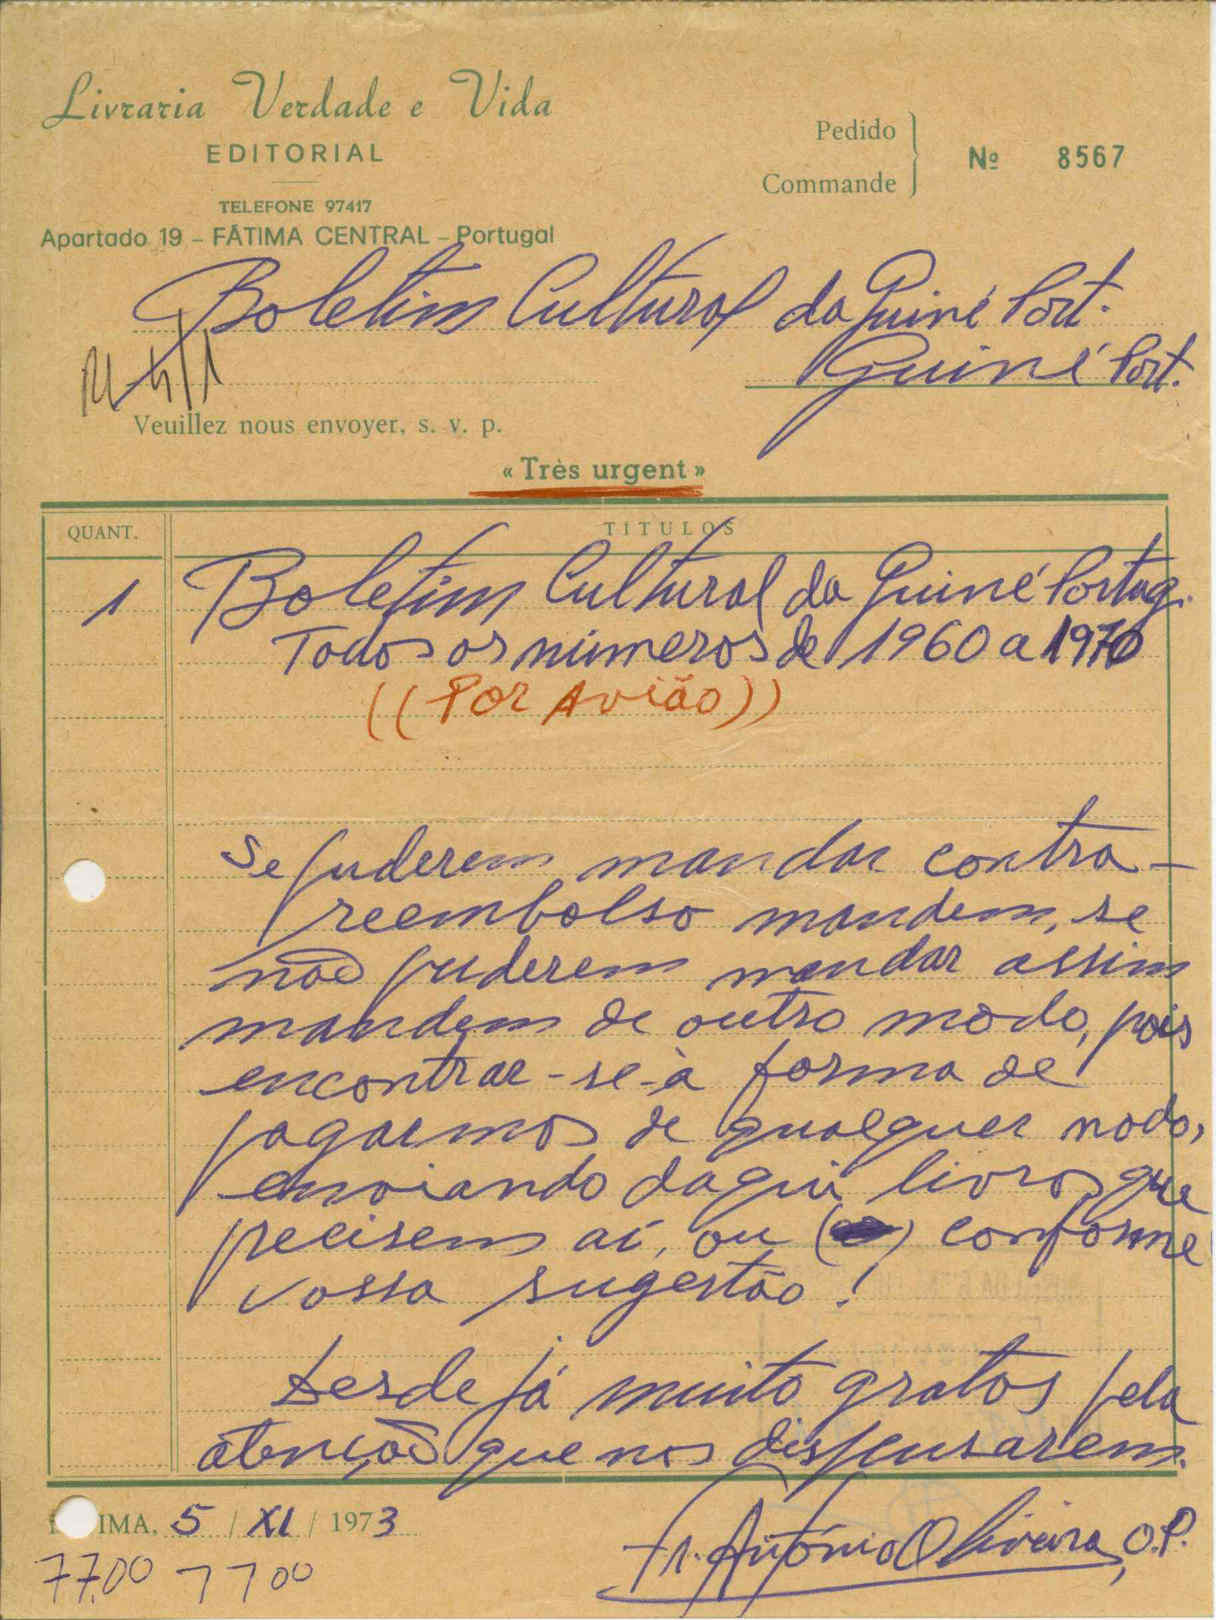 Livraria Verdade e Vida
EDITORIAL
TELEFONE 97417
Apartado 19 – FÁTIMA CENTRAL – Portugal
Pedido
Commande
Nº 8567
Boletim Cultural da Guiné Port.
Guiné Port.
Veuillez nous envoyer, s. v. p.
«Très urgent»
QUANT. TITULOS
1 Boletim Cultural da Guiné Portug.
Todos os números de 1960 a 1970
((Por Avião))
Se puderem mandar contra-
reembolso mandem, se
não puderem mandar assim
mandem de outro modo, pois
encontrar-se-à forma de
pagarmos de qualquer modo,
enviando daqui livros que
precisem aí, ou conforme
vossa sugestão!
Desde já muito gratos pela
atenção que nos dispensarem.
IMA, 5 / XI / 1973
Fr. António Oliveira, O.P.
77.00 7700